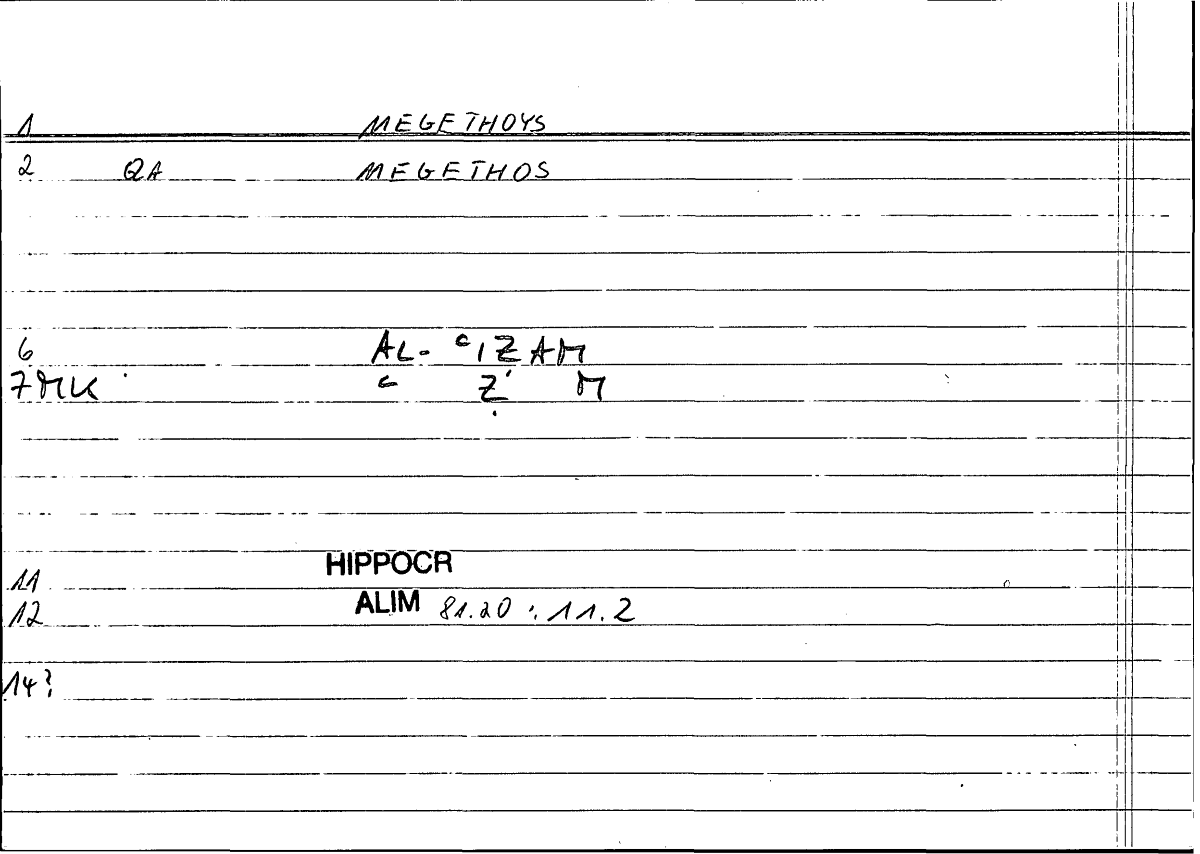 1 MEGETHOYS
2 QA MEGETHOS
6 AL- ʿIZAM
7 MK ʿ Ẓ M
11 HIPPOCR
12 ALIM 81.20 : 11.2
14?